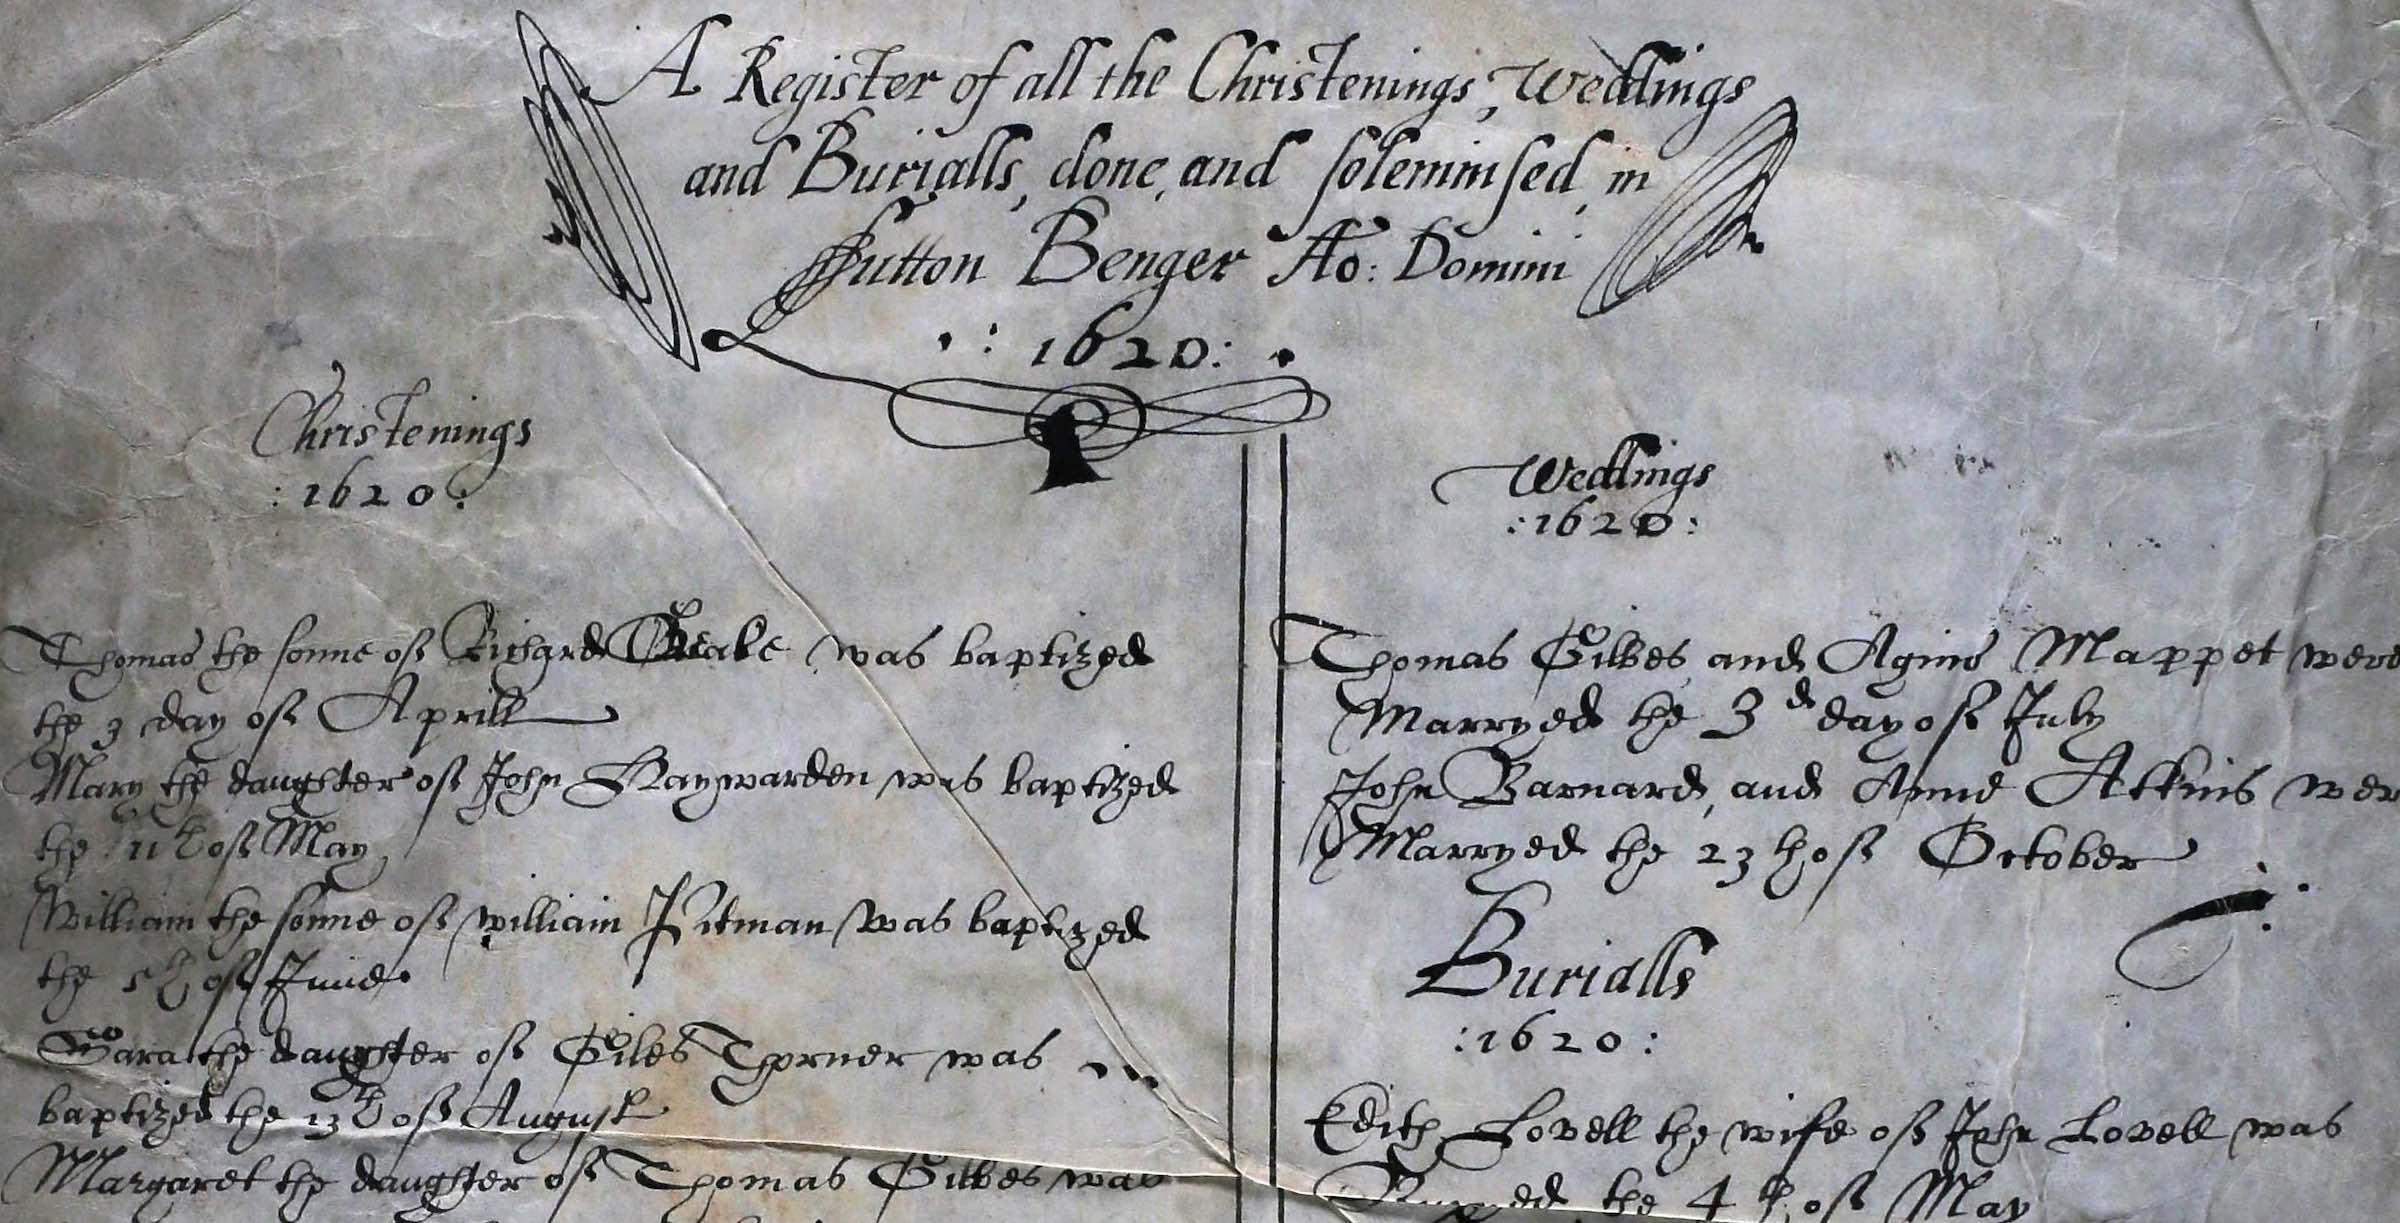 A Register of all the Christenings, Weddings
and Burialls, done, and solemnised, in
Sutton Benger Ao: Domini
:1620:
Christenings
:1620:
Thomas the sonne of Richard was baptized
the 3 day of Aprill
Mary the daughter of John Haywarden was baptized
the 11th of May
William the sonne of william Pitman was baptized
the 5th of June
Sara the daughter of Giles Thorner was
baptized the 13th of August
Margaret the daughter of Thomas Gilbes was
Weddings
:1620:
Thomas Gilbes and Agnis Mappet were
Marryed the 3d day of July
John Barnard, and Anne Atkins wer
Marryed the 23th of October
Burialls
:1620:
Edith Lovell the wife of John Lovell was
the 4th of May